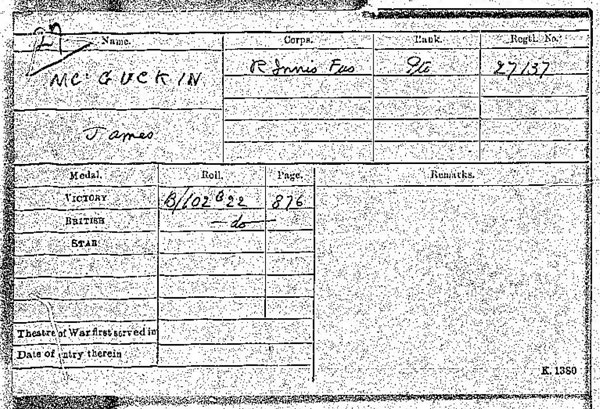 Name. Corps. Rank. Regtl. No.
Mc GUCKIN R Innis Fus Pte 27137
James
Medal. Roll. Page. Remarks.
VICTORY B/602 B22 876
BRITISH —do—
STAR
Theatre of War first served in
Date of entry therein
K. 1380